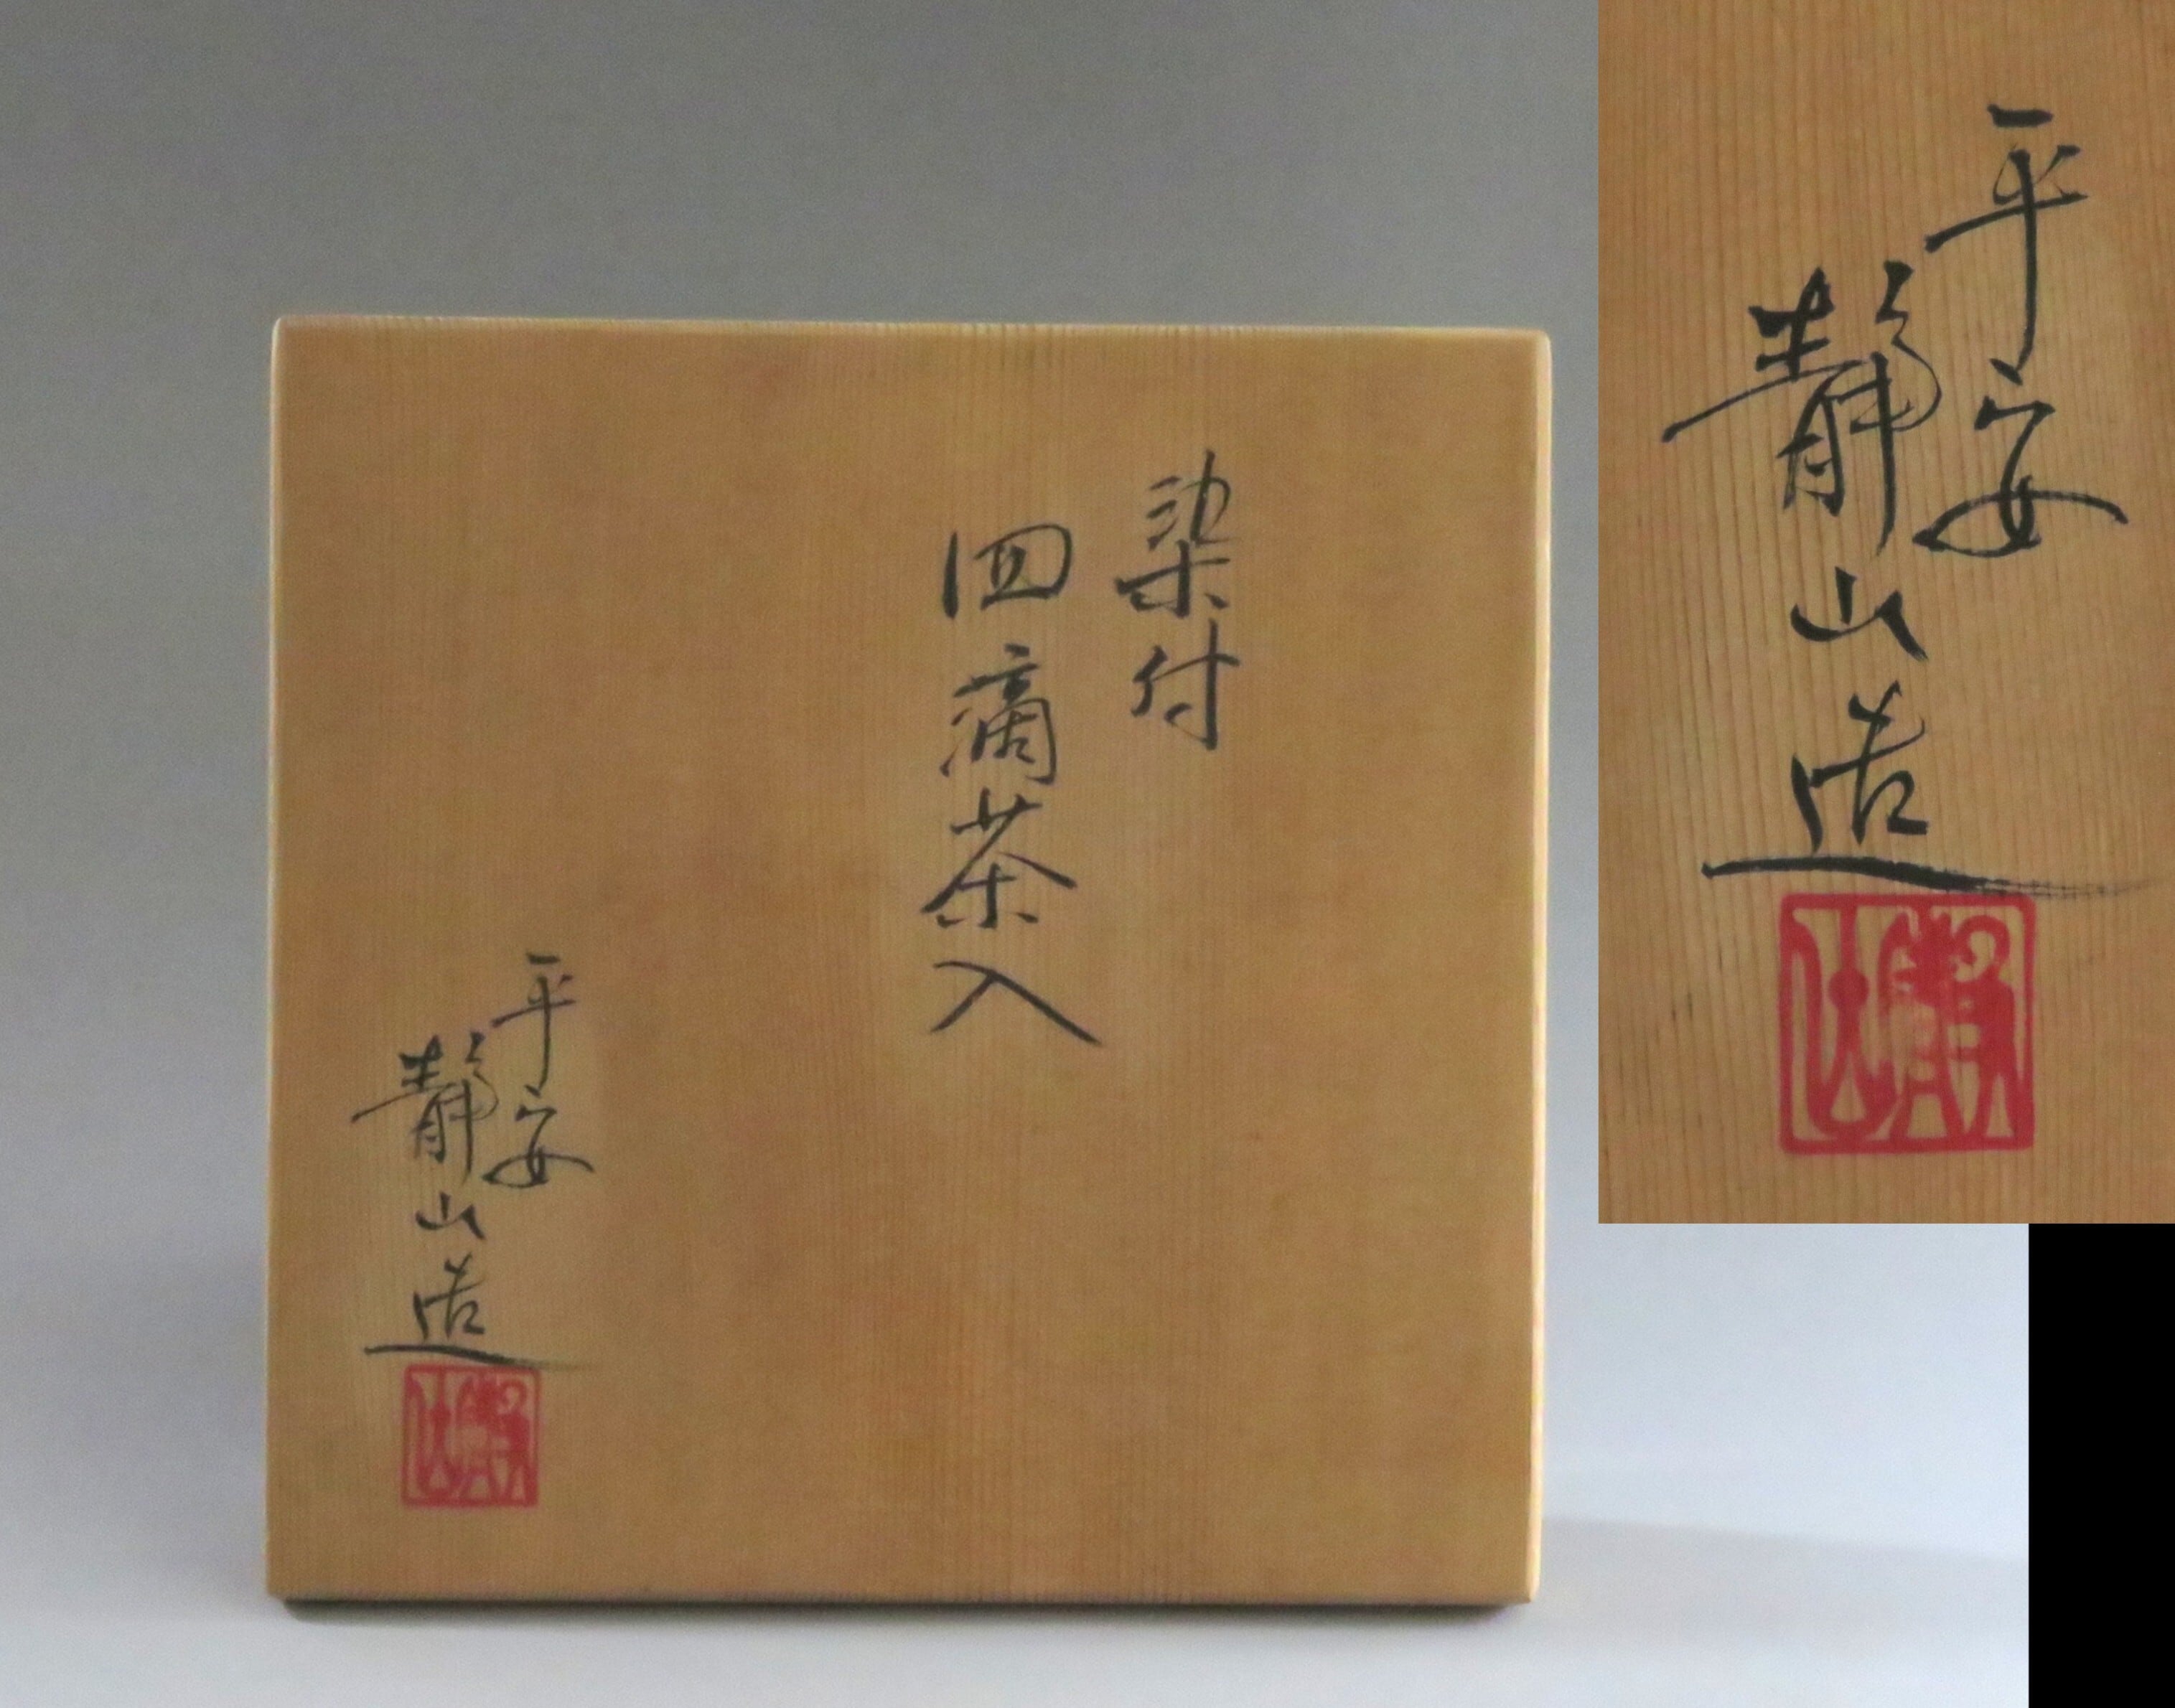 染付
四滴茶入
平安
靜山造
靜山
平安
靜山造
靜山